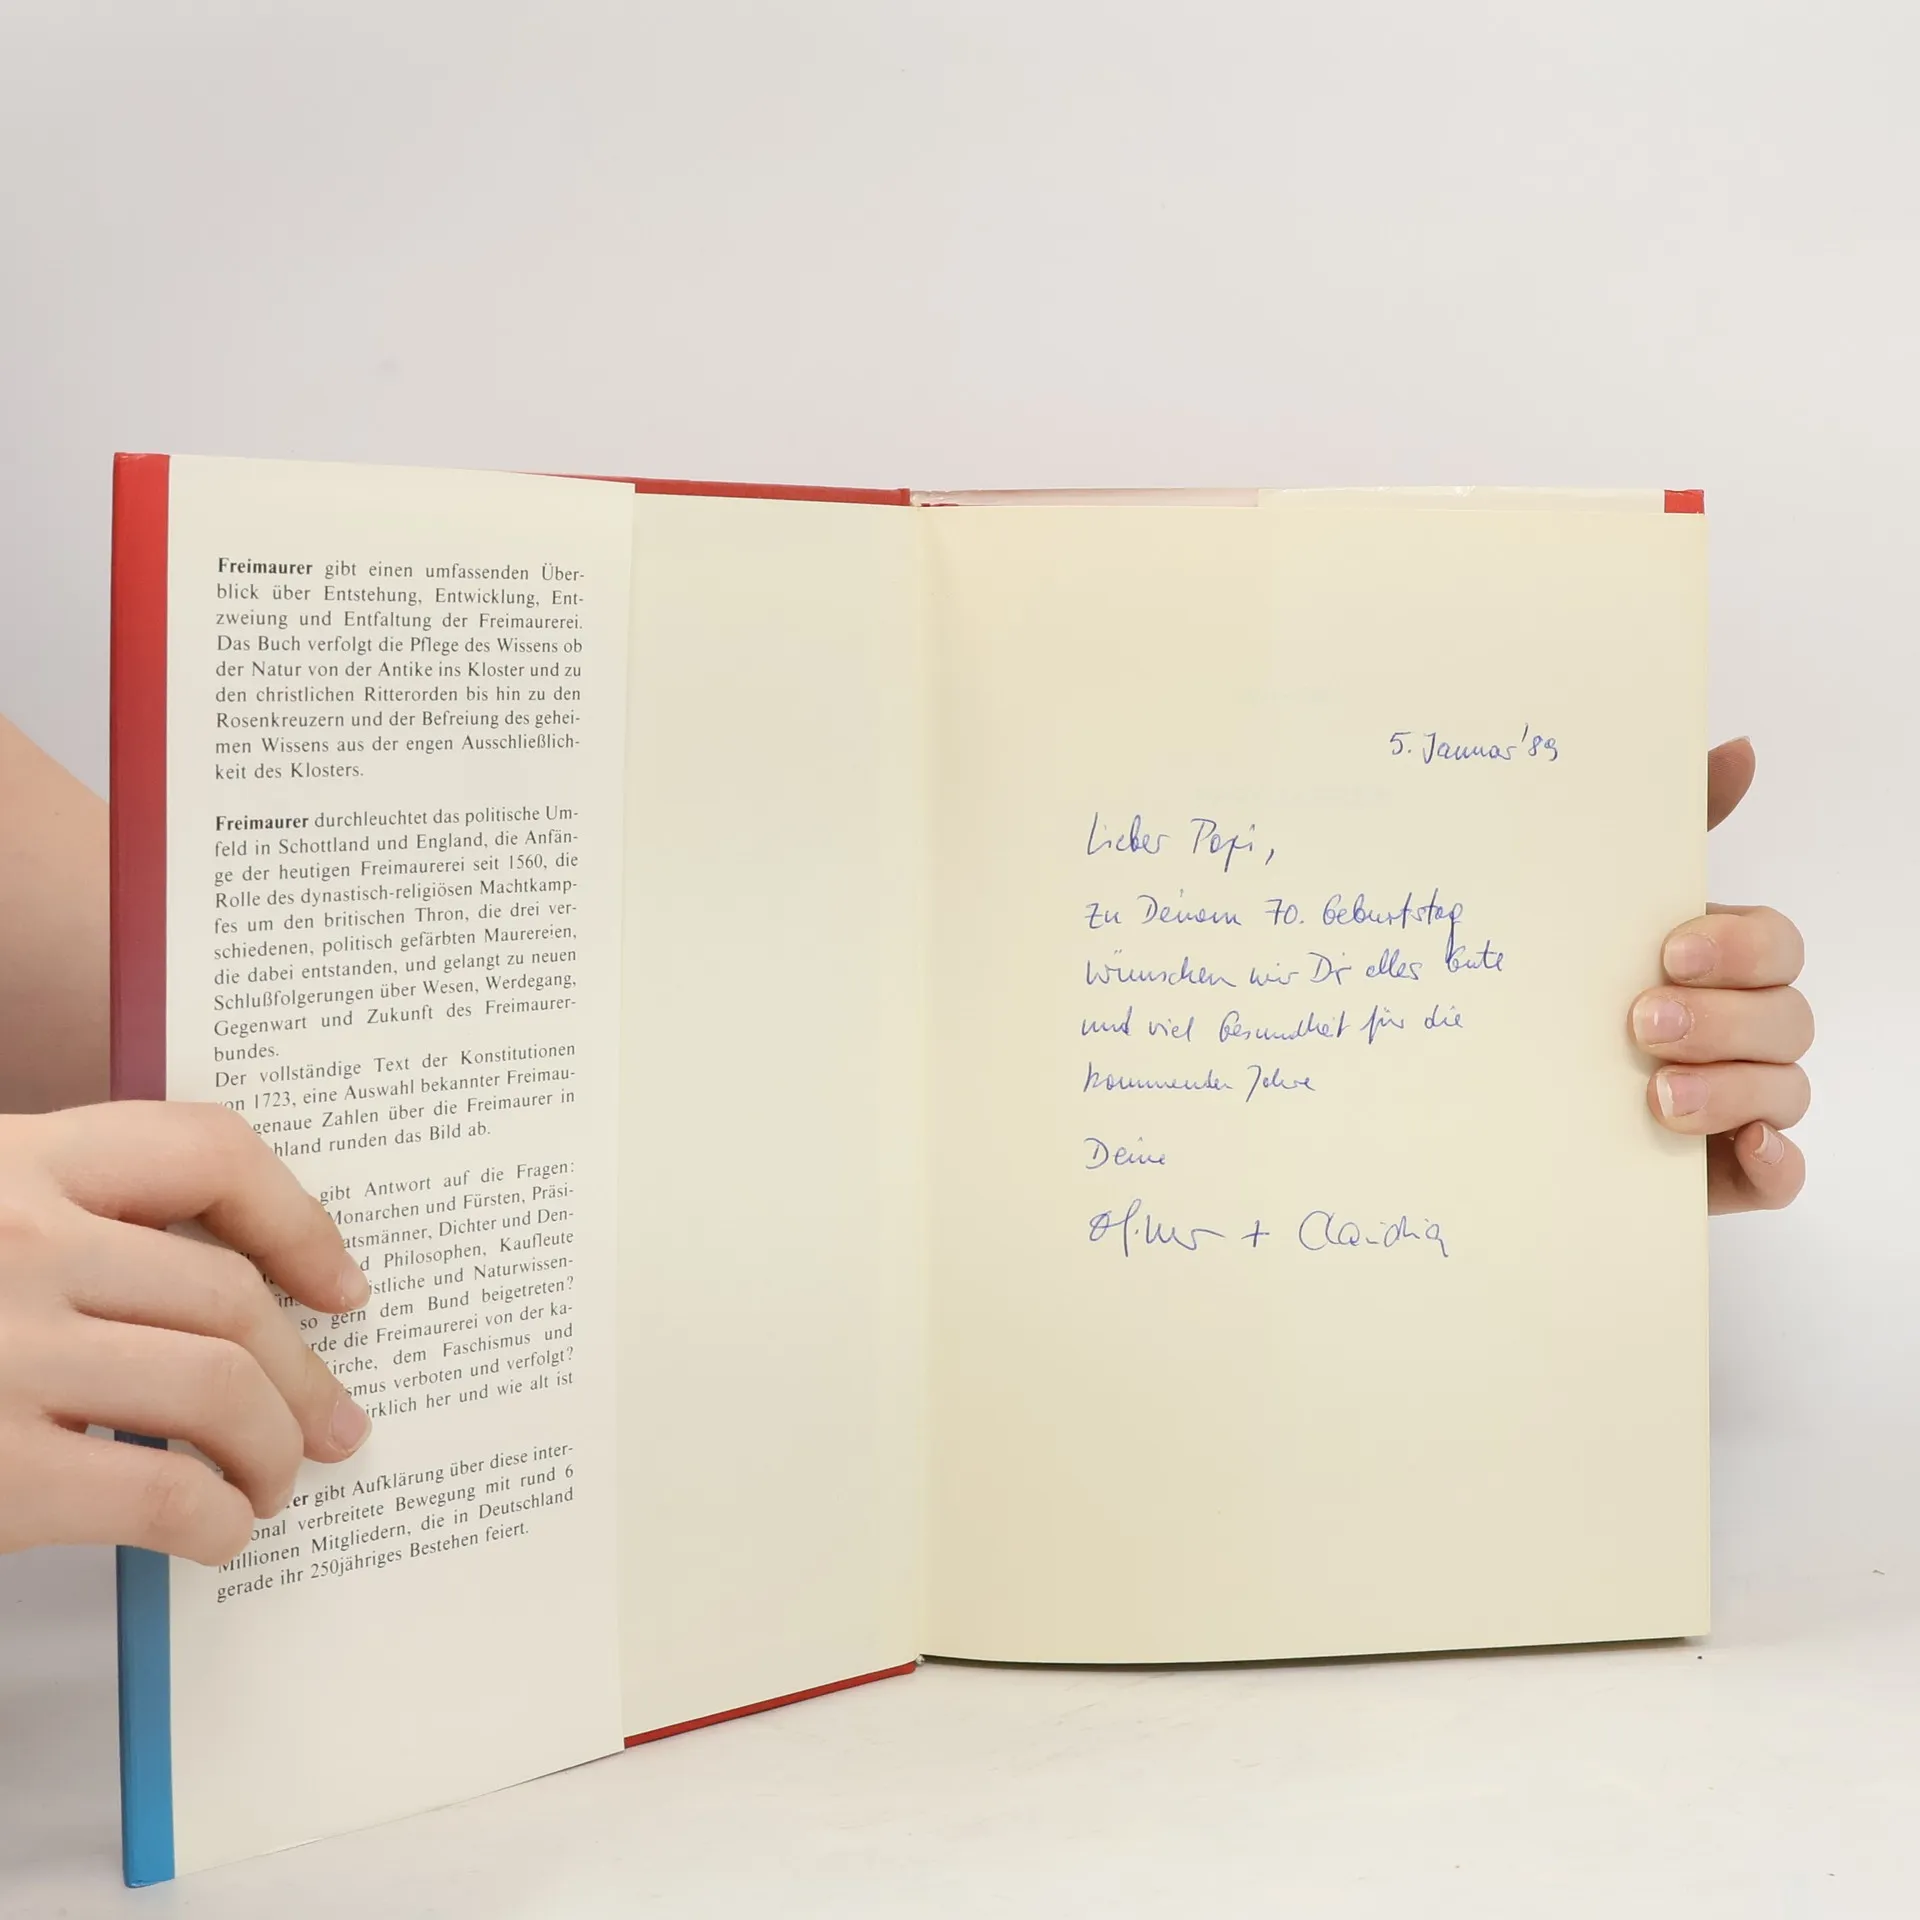 Freimaurer gibt einen umfassenden Über-
blick über Entstehung, Entwicklung, Ent-
zweiung und Entfaltung der Freimaurerei.
Das Buch verfolgt die Pflege des Wissens ob
der Natur von der Antike ins Kloster und zu
den christlichen Ritterorden bis hin zu den
Rosenkreuzern und der Befreiung des gehei-
men Wissens aus der engen Ausschließlich-
keit des Klosters.
Freimaurer durchleuchtet das politische Um-
feld in Schottland und England, die Anfän-
ge der heutigen Freimaurerei seit 1560, die
Rolle des dynastisch-religiösen Machtkamp-
fes um den britischen Thron, die drei ver-
schiedenen, politisch gefärbten Maurereien,
die dabei entstanden, und gelangt zu neuen
Schlußfolgerungen über Wesen, Werdegang,
Gegenwart und Zukunft des Freimaurer-
bundes.
Der vollständige Text der Konstitutionen
von 1723, eine Auswahl bekannter Freimau-
genaue Zahlen über die Freimaurer in
hland runden das Bild ab.
gibt Antwort auf die Fragen:
Monarchen und Fürsten, Präsi-
atsmänner, Dichter und Den-
d Philosophen, Kaufleute
istliche und Naturwissen-
so gern dem Bund beigetreten?
rde die Freimaurerei von der ka-
irche, dem Faschismus und
ismus verboten und verfolgt?
irklich her und wie alt ist
er gibt Aufklärung über diese inter-
onal verbreitete Bewegung mit rund 6
Millionen Mitgliedern, die in Deutschland
gerade ihr 250jähriges Bestehen feiert.
5. Januar '89
Lieber Papi,
zu Deinem 70. Geburtstag
wünschen wir Dir alles Gute
und viel Gesundheit für die
kommenden Jahre
Deine
+ Claudia